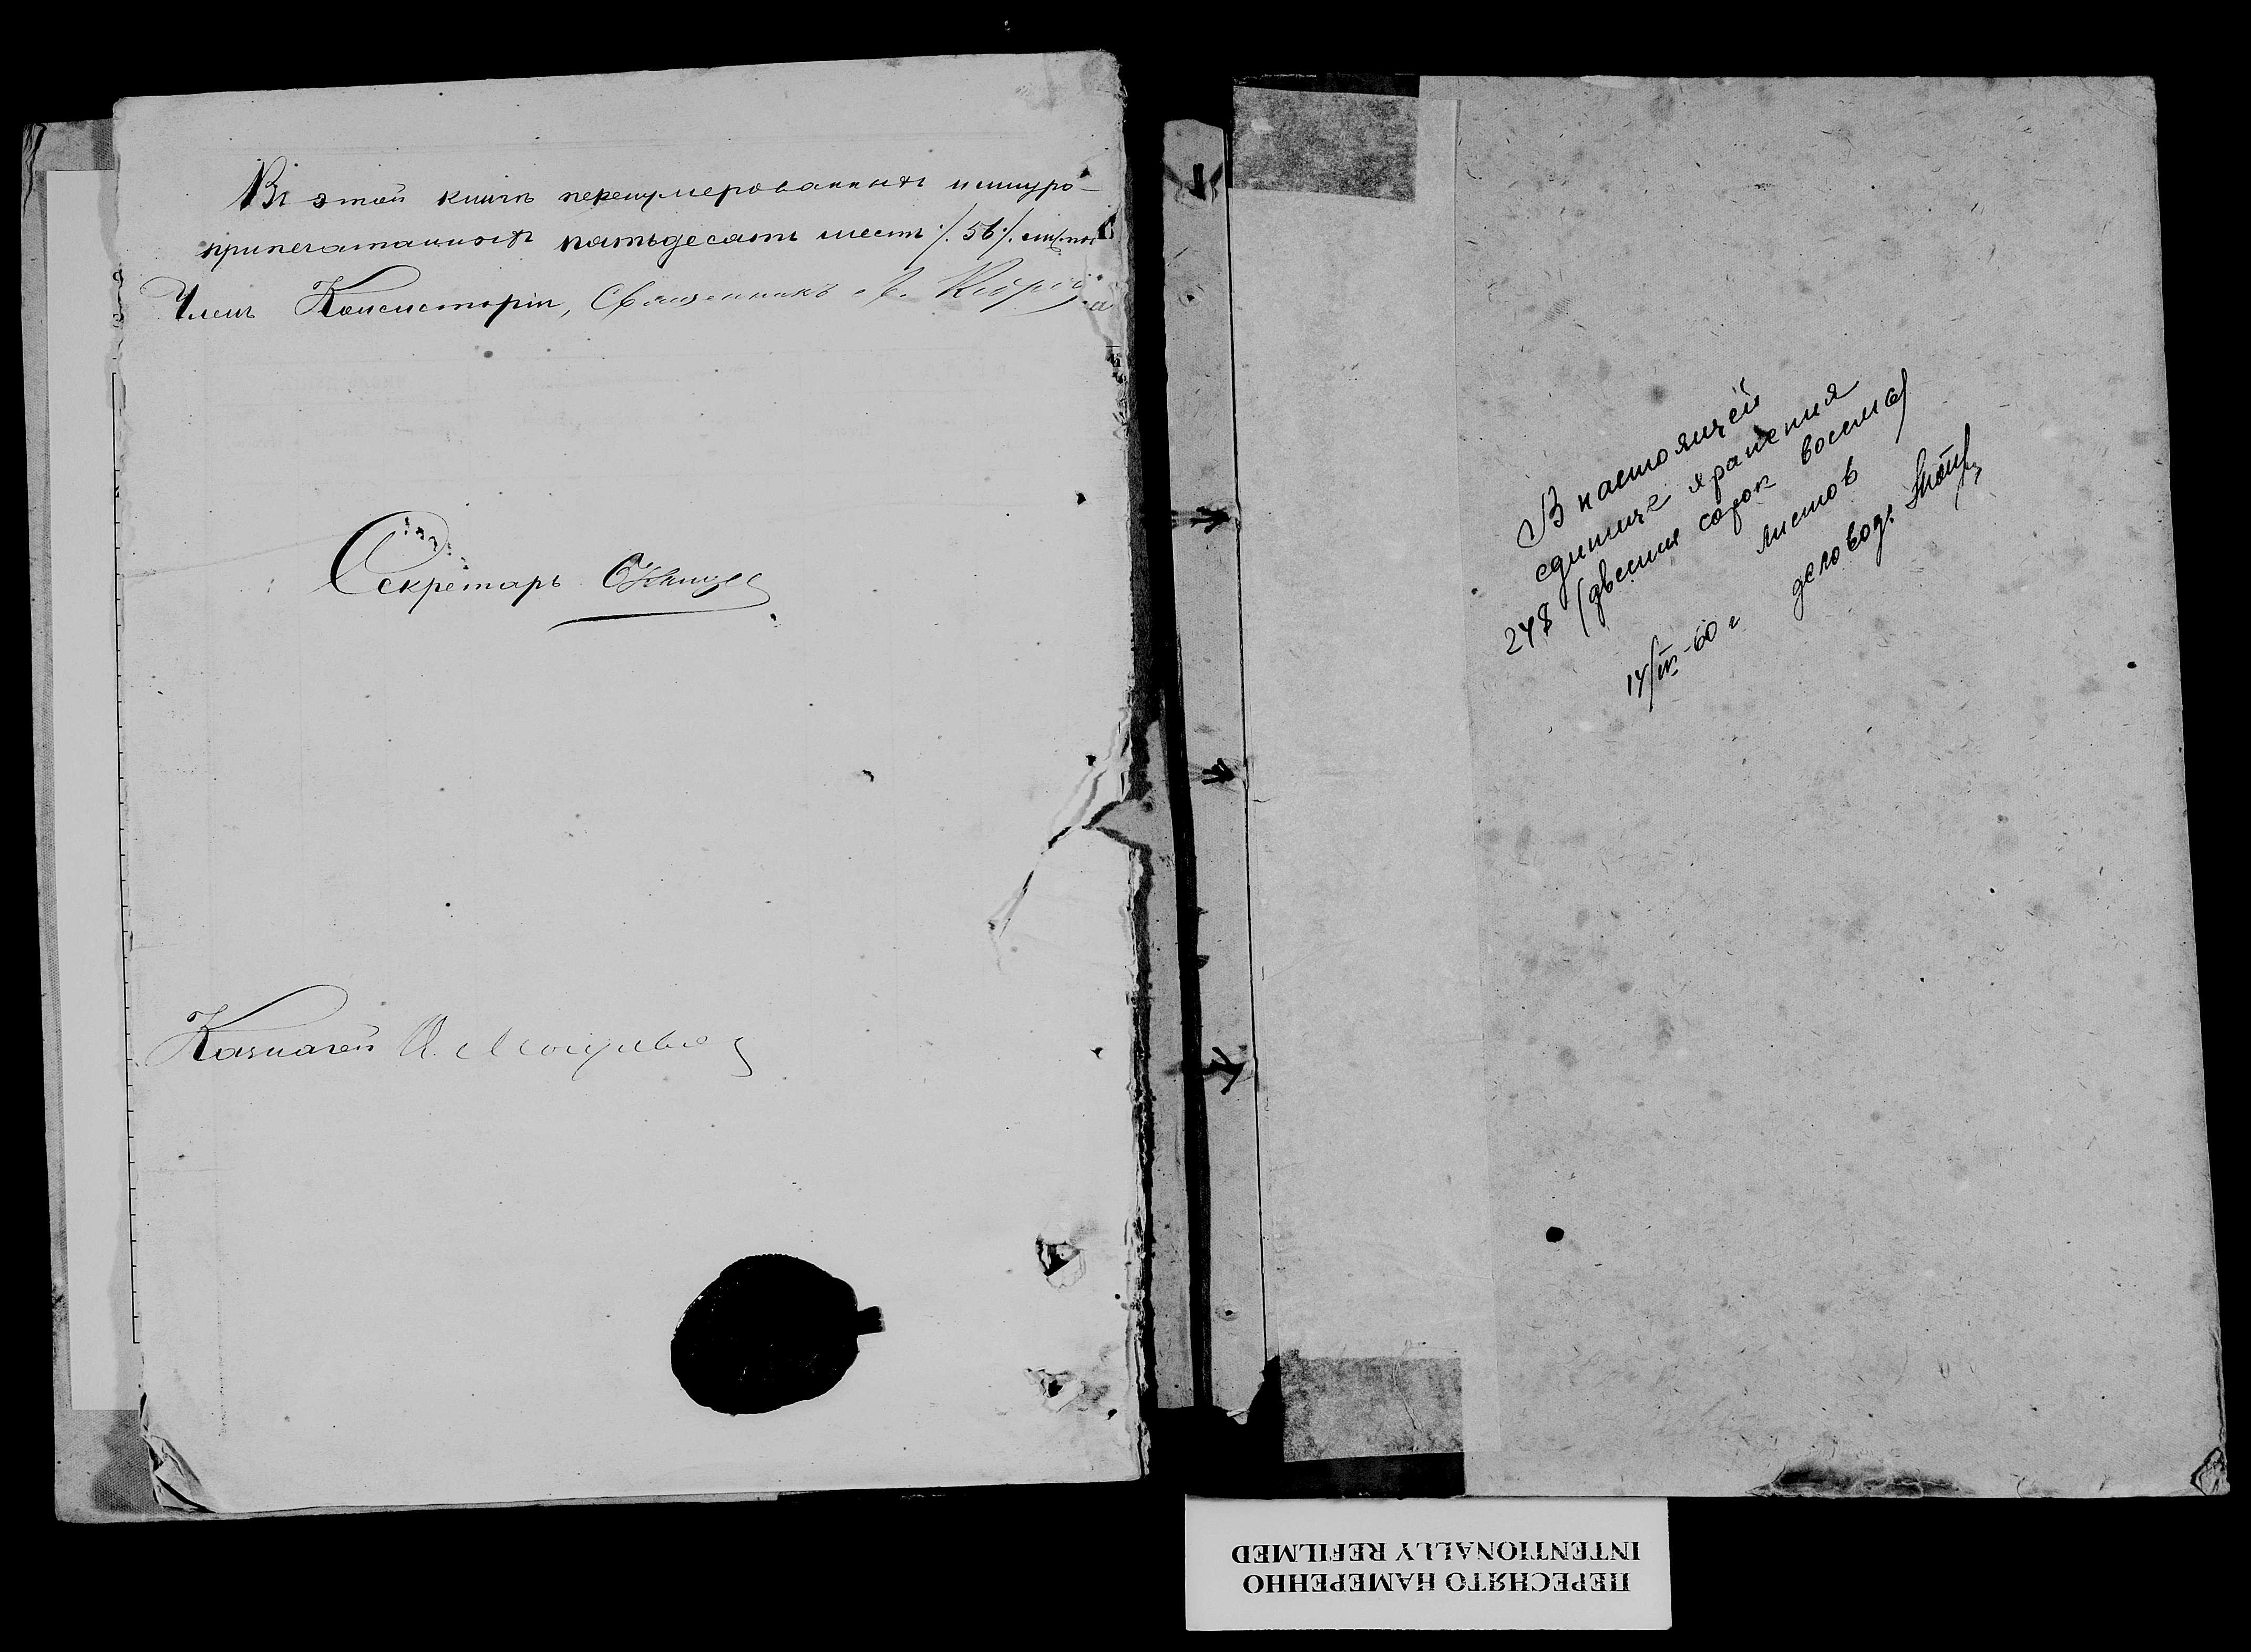 Въ этой книгѣ перенумерованныхъ и шнуро-
припечатанныхъ пятьдесятъ шесть /. 56 /.
Членъ Консисторіи, Священникъ
Секретарь
Казначей
В настоящей
единице хранения
248 (двести сорок восемь)
листов
14/IV-60 г деловод.
ПЕРЕСНЯТО НАМЕРЕННО
INTENTIONALLY REFILMED